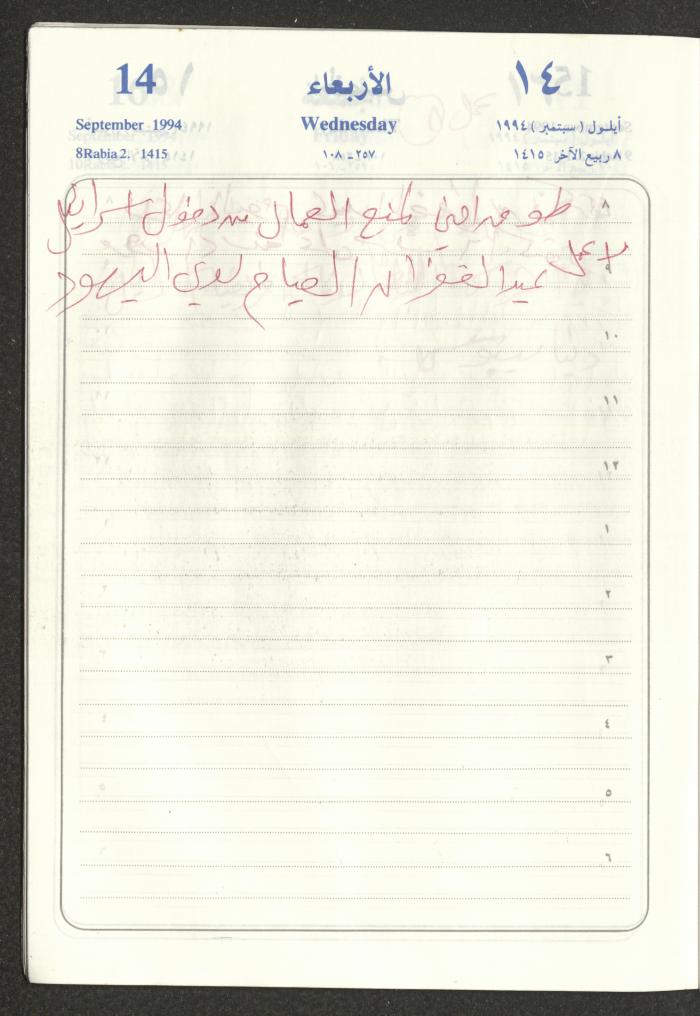 14 الأربعاء ١٤
September 1994 Wednesday أيلول (سبتمبر) ١٩٩٤
8Rabia2. 1415 ٢٥٧-١٠٨ ٨ ربيع الآخر ١٤١٥
٨ طوق امني لمنع العمال من دخول اسرائيل
٩ عيد الغفران الصيام لدى اليهود
١٠
١١
١٢
١
٢
٣
٤
٥
٦